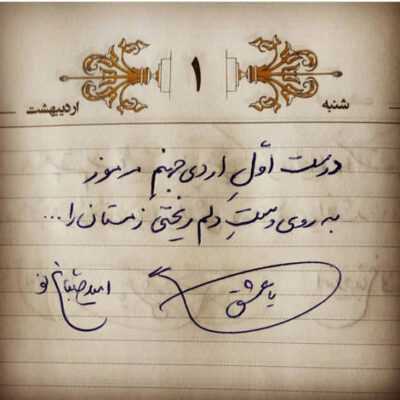 شنبه ۱ اردیبهشت
درست اوّلِ اردی‌جهنمِ مرموز
به روی دستِ دلم ریختیْ زمستان را...
یا عشق
امید صباغ نو